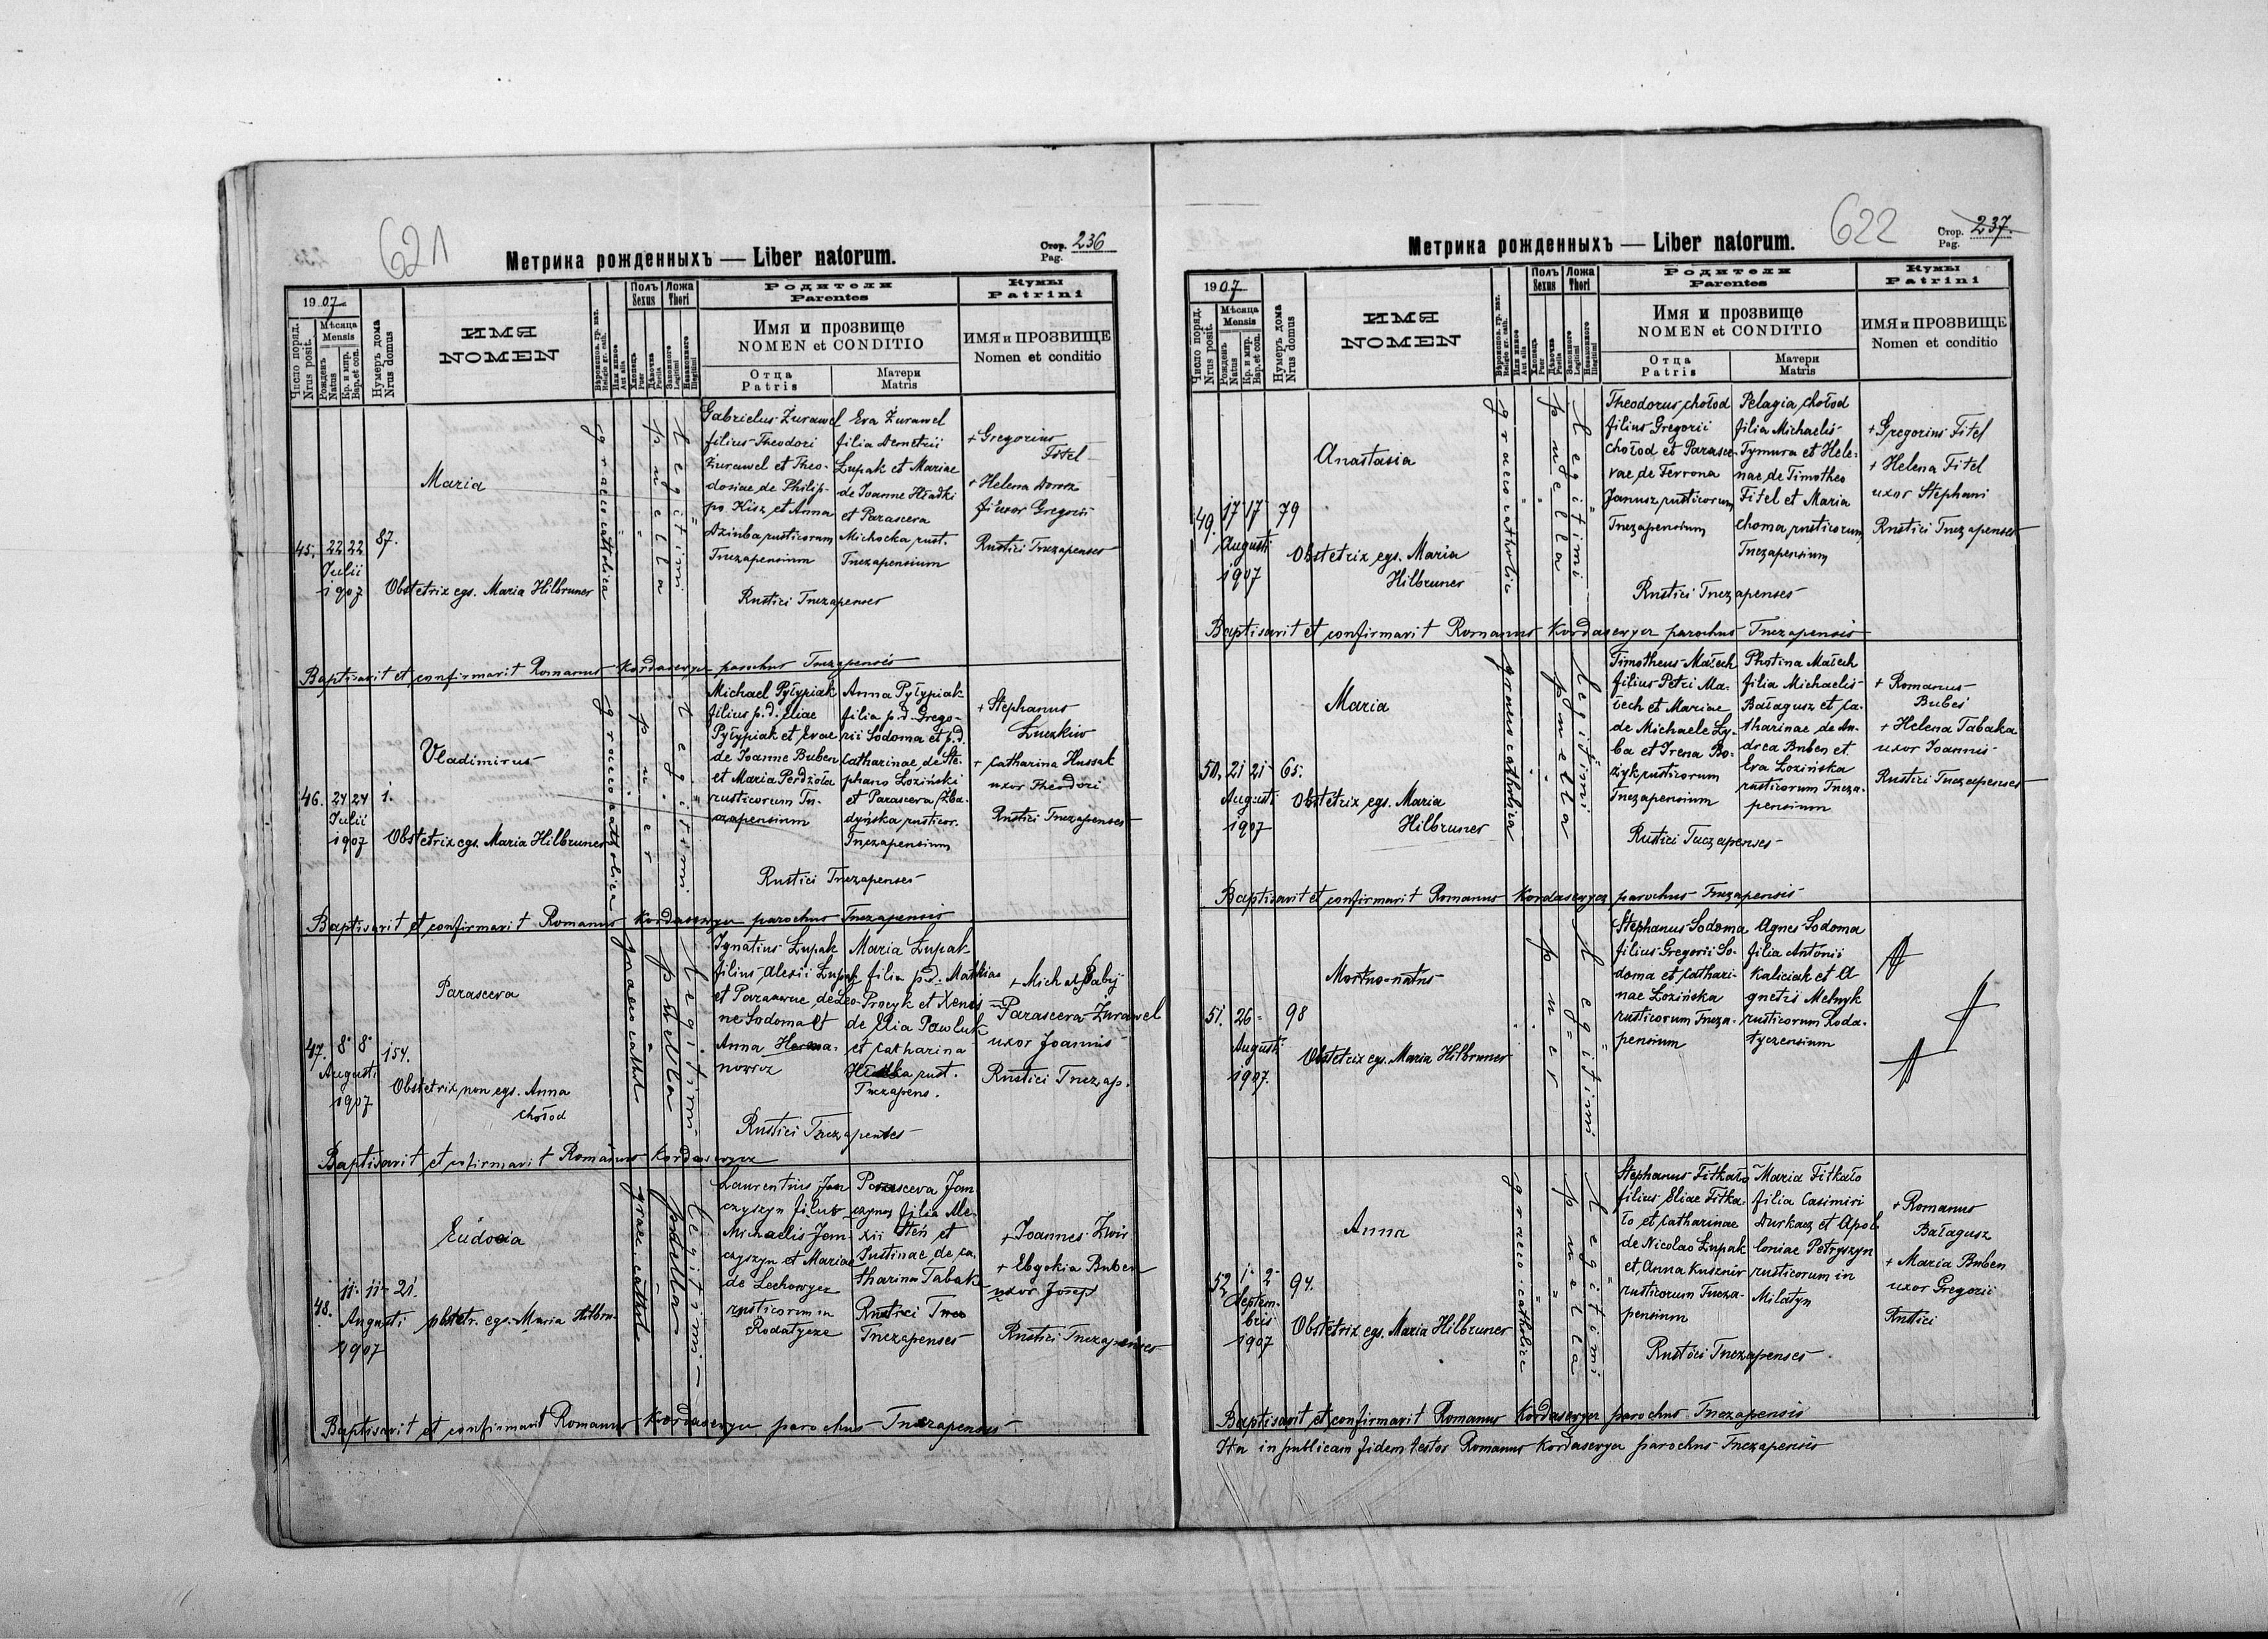 621
Метрика рожденныхъ — Liber natorum.
Стор. Pag. 236
1907
Число поряд. Nrus posit.
Мѣсяца Mensis
Рожденъ Natus
Кр. и мир. Bap. et con.
Нумеръ дома Nrus domus
ИМЯ NOMEN
Полъ Sexus
Хлопецъ Puer
Дѣвочка Puella
Ложа Thori
Законного Legitimi
Незаконного Illegitimi
Родители Parentes
Имя и прозвище NOMEN et CONDITIO
Отца Patris
Матери Matris
Кумы Patrini
ИМЯ и ПРОЗВИЩЕ Nomen et conditio
45. 22 22 87.
Julii
1907
Maria
Obstetrix egs. Maria Hilbruner
graeco catholica
puella
Legitimi
Gabrielus Żurawel
filius Theodori
Żurawel et Theo-
dosiae de Philip-
po Kisz et Anna
Dziuba rusticorum
Tuczapensium
Eva Żurawel
filia Demetrii
Łupak et Mariae
de Joanne Hładki
et Parasceva
Michocka rust.
Tuczapensium
Rustici Tuczapenses
+ Gregorius
Fitel
+ Helena
uxor Gregorii
Rustici Tuczapenses
Baptisavit et confirmavit Romanus Kordasewycz parochus Tuczapensis
46. 24 24 1.
Julii
1907
Vladimirus
Obstetrix egs. Maria Hilbruner
graeco catholica
puer
Legitimi
Michael Pyłypiak
filius p.d. Eliae
Pyłypiak et Evae
de Joanne Buben
et Maria Perdzioła
rusticorum Tu-
czapensium
Anna Pyłypiak
filia p.d. Grego-
rii Sodoma et p.d.
Catharinae, de Ste-
phano Łoziński
et Parasceva Żba-
dyńska rusticor.
Tuczapensium
Rustici Tuczapenses
+ Stephanus
Łuczkiw
+ Catharina Hussak
uxor Theodori
Rustici Tuczapenses
Baptisavit et confirmavit Romanus Kordasewycz parochus Tuczapensis
47. 8 8 154.
Augusti
1907
Parasceva
Obstetrix non egs. Anna
Chołod
graeco cathol
puella
Legitimi
Ignatius Łupak
filius Alexii Łupak
et Parascevae de Leo-
ne Sodoma et
Anna
nowicz
Maria Łupak
filia p.d. Mathiae
Procyk et Xenis
de Elia Pawluk
et Catharina
rust.
Tuczapens.
Rustici Tuczapenses
+ Michael Babij
Parasceva Żurawel
uxor Joannis
Rustici Tuczap.
Baptisavit et cofirmavit Romanus Kordasewycz
48. 11 11 21.
Augusti
1907
Eudocia
obstetr. egs. Maria Hilbru-
graec. cathol.
puella
legitimi
Laurentius Jan
czyszyn filius
Michaelis Jan-
czyszyn et Mariae
de Lechowycz
rusticorum in
Rodatycze
Parasceva Jan
czyszyn filia Ale-
xii Steń et
Justinae, de Ca-
tharina Tabak
Rustici
Tuczapenses
+ Joannes Żwir
+ Ebgokia Buben
uxor Josep
Rustici Tuczapenses
Baptisavit et confirmavit Romanus Kordasewycz parochus Tuczapensis
622
Метрика рожденныхъ — Liber natorum.
Стор. Pag. 237.
1907
Число поряд. Nrus posit.
Мѣсяца Mensis
Рожденъ Natus
Кр. и мир. Bap. et con.
Нумеръ дома Nrus domus
ИМЯ NOMEN
Полъ Sexus
Хлопецъ Puer
Дѣвочка Puella
Ложа Thori
Законного Legitimi
Незаконного Illegitimi
Родители Parentes
Имя и прозвище NOMEN et CONDITIO
Отца Patris
Матери Matris
Кумы Patrini
ИМЯ и ПРОЗВИЩЕ Nomen et conditio
49. 17 17 79
Augusti
1907
Anastasia
Obstetrix egs. Maria
Hilbruner
graeco catholic
puella
Legitimi
Theodorus Chołod
filius Gregorii
Chołod et Parasce-
vae de Ferrona
Janusz, rusticorum
Tuczapensium
Pelagia Chołod
filia Michaelis
Tymura et Hele-
nae, de Timotheo
Fitel et Maria
Choma, rusticorum
Tuczapensium
Rustici Tuczapenses
+ Gregorius Fitel
+ Helena Fitel
uxor Stephani
Rustici Tuczapenses
Baptisavit et confirmavit Romanus Kordasewycz parochus Tuczapensis
50. 21 21 65.
Augusti
1907
Maria
Obstetrix egs. Maria
Hilbruner
graeco catholica
puella
Legitimi
Timotheus Małech
filius Petri Ma-
łech et Mariae
de Michaele Ły-
ba et Irena Bo-
żyk, rusticorum
Tuczapensium
Photina Małech
filia Michaelis
Bałagusz et Ca-
tharinae, de An-
drea Buben et
Eva Łozińska
rusticorum Tucza-
pensium
Rustici Tuczapenses
+ Romanus
Bubeś
+ Helena Tabaka
uxor Joannis
Rustici Tuczapenses
Baptisavit et confirmavit Romanus Kordasewycz parochus Tuczapensis
51. 26 98
Augusti
1907.
Mortuo-natus
Obstetrix egs. Maria Hilbruner
puer
Legitimi
Stephanus Sodoma
filius Gregorii So-
doma et Cathari-
nae Łozińska
rusticorum Tucza-
pensium
Agnes Sodoma
filia Antonii
Kaliciak et A
gnetis Melnyk
rusticorum Roda-
tyczensium
52. 1 2 94.
Septem-
bris
1907
Anna
Obstetrix egs. Maria Hilbruner
graeco-catholic
puella
Legitimi
Stephanus Fitkało
filius Eliae Fitka-
ło et Catharinae
de Nicolao Łupak
et Anna Kusznir
rusticorum Tucza-
pensium
Maria Fitkało
filia Casimiri
Durkacz et Apol-
loniae Petryszyn
rusticorum in
Milatyn
Rustici Tuczapenses
+ Romanus
Bałagusz
+ Maria Buben
uxor Gregorii
Rustici
Baptisavit et confirmavit Romanus Kordasewycz parochus Tuczapensis
Ita in publicam fidem testor Romanus Kordasewycz parochus Tuczapensis